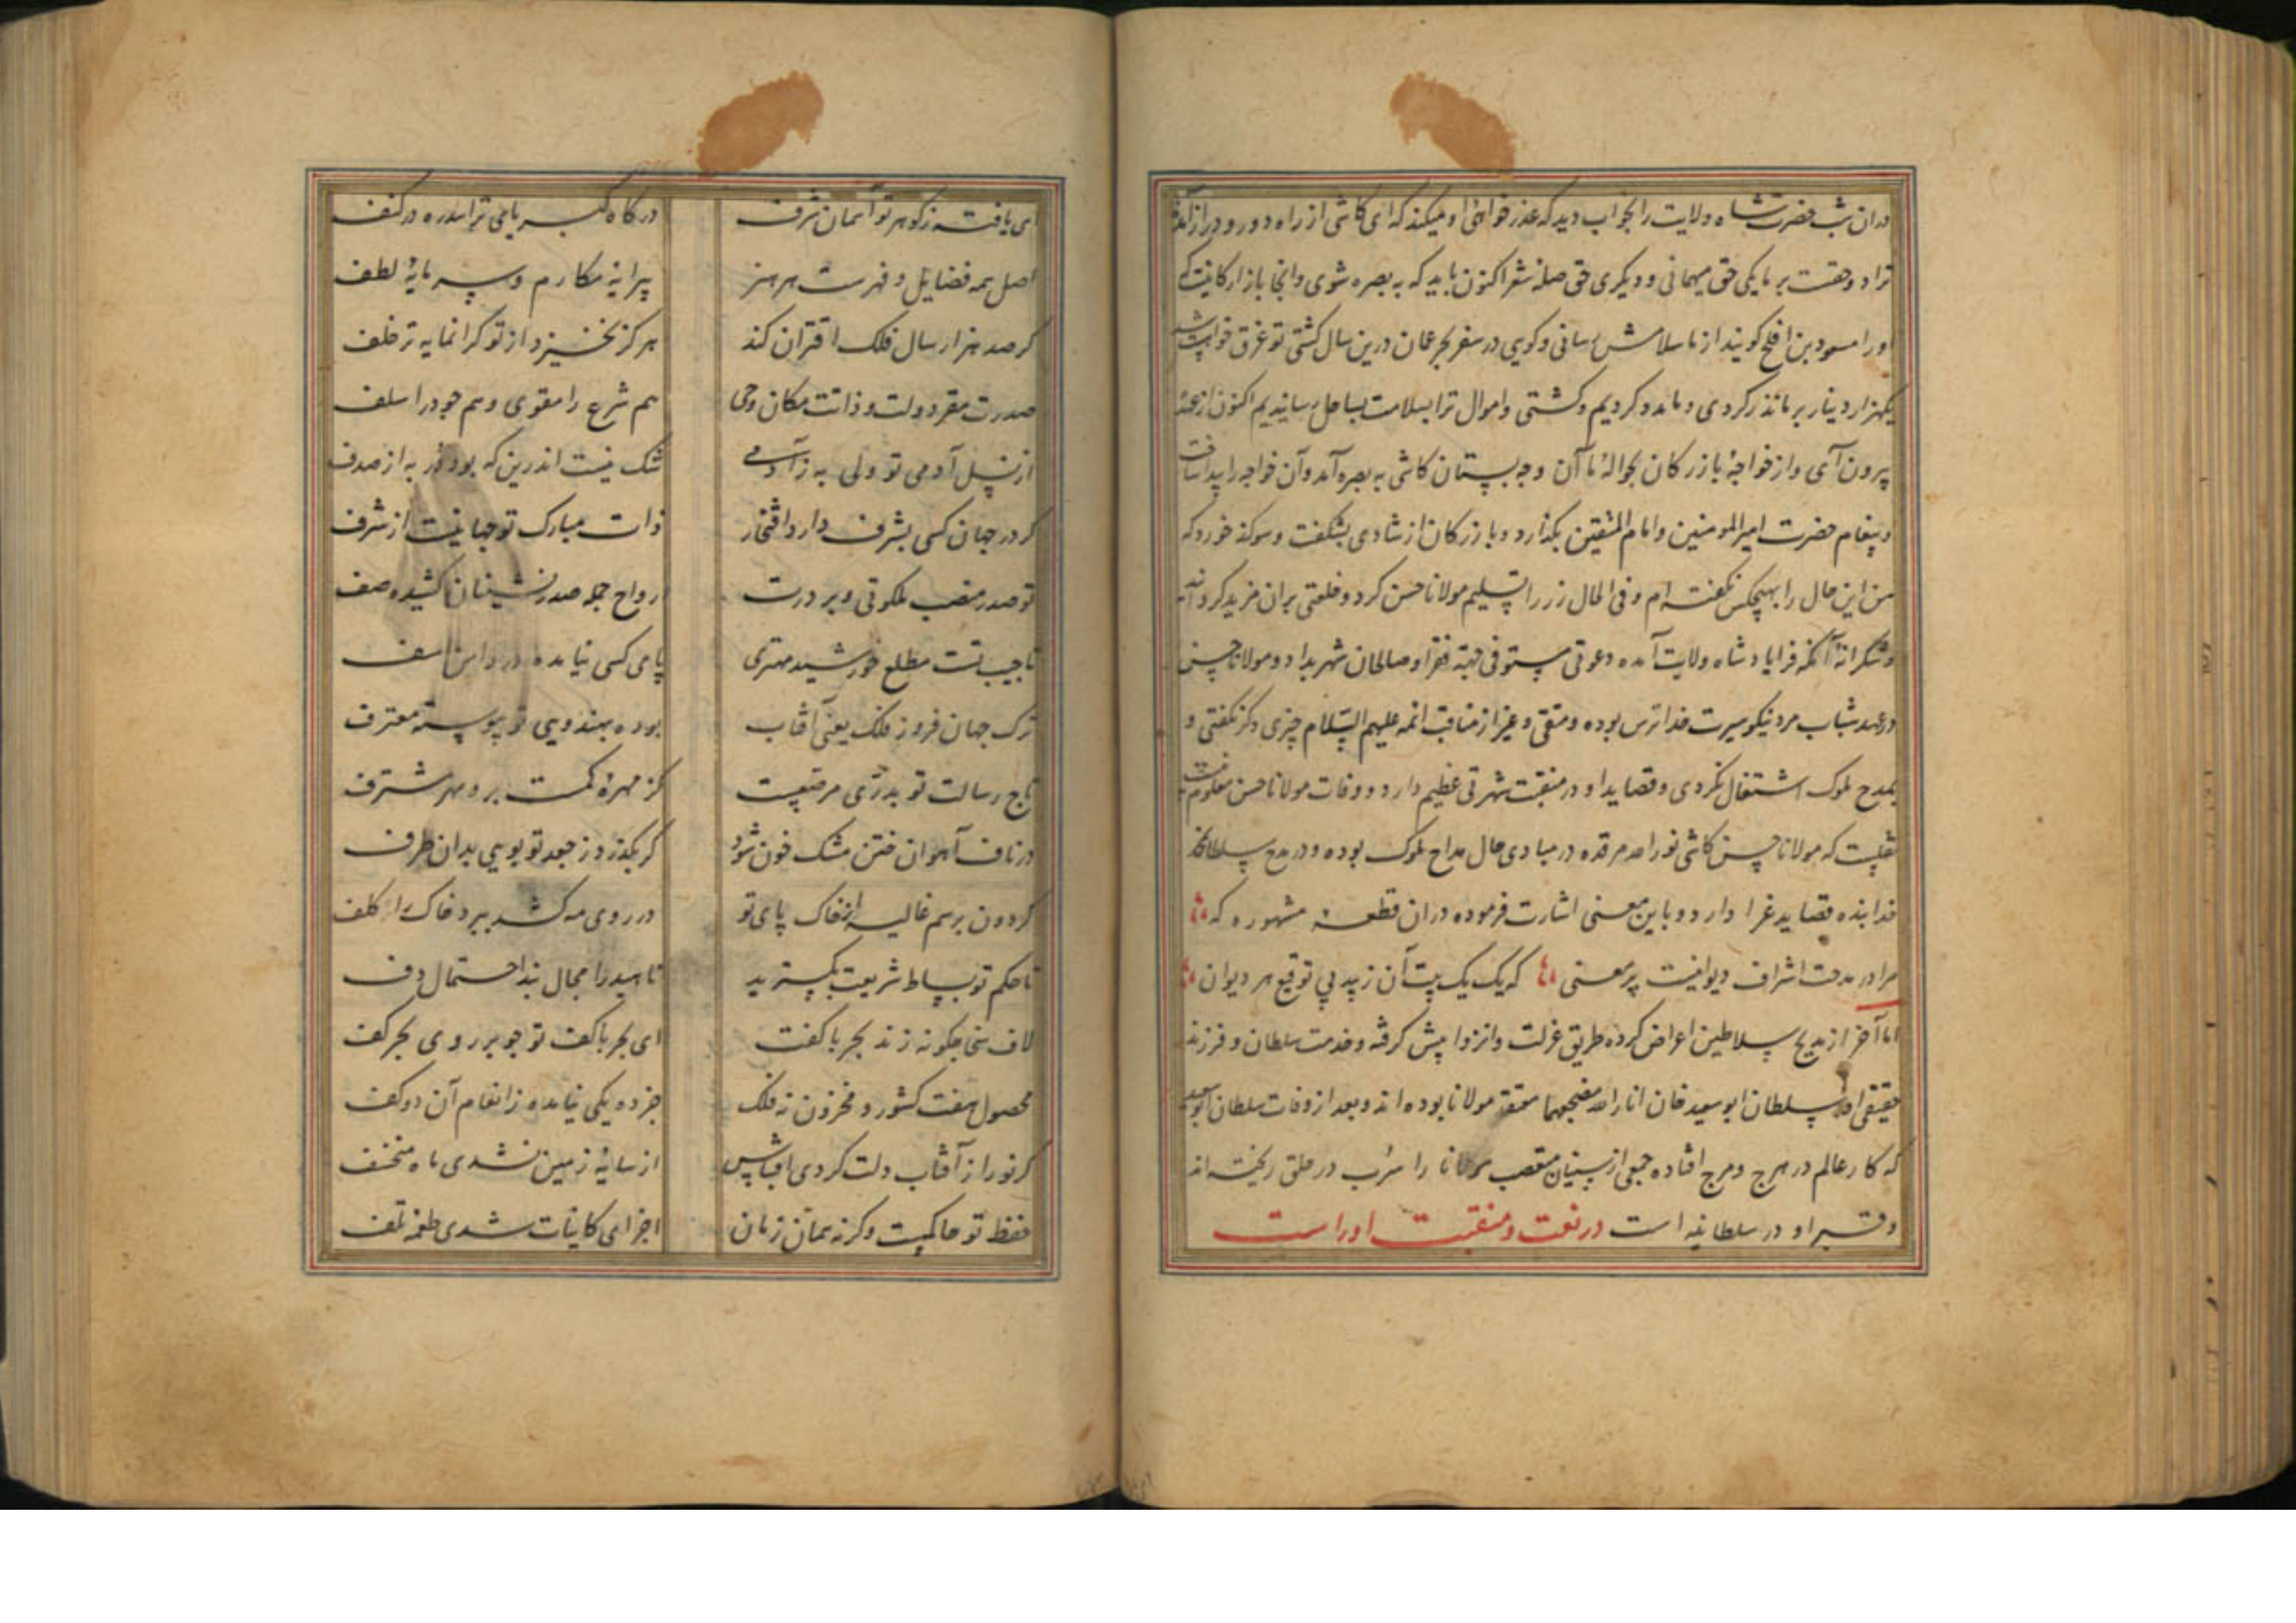 دران شب حضرت شاه ولایت را بخواب دید که عذر خواهی او میکند که ای کاشی از راه دور و دراز آمده
ترا دو حقست بر ما یکی حق میهمانی و دیگری حق صله شعر اکنون باید که به بصره شوی وانجا بازارکانیست که
اورا مسعود بن افلح کویند از ما سلامش رسانی و کویی در سفر بحر عمان درین سال کشتی تو غرق خواست شد
یکهزار دینار بر ما نذر کردی و ما مدد کردیم و کشتی و اموال ترا بسلامت بساحل رسانیدیم اکنون از عهده
بیرون آی و از خواجهٔ بازرکان بحوالهٔ ما آن وجه بستان کاشی به بصره آمد و آن خواجه را پیدا ساخت
و پیغام حضرت امیرالمومنین و امام المتقین بکذارد و بازرکان از شادی بشکفت و سوکند خورد که
من این حال را بهیچکس نکفته ام و فی الحال زر را تسلیم مولانا حسن کرد و خلعتی بران مزید کردانید
و شکرانهٔ آنکه فرایاد شاه ولایت آمده دعوتی مستوفی جهة فقرا و صالحان شهر بداد و مولانا حسن
در عهد شباب مرد نیکو سیرت خدا ترس بوده و متقی و غیر از مناقب ائمه علیهم السلام چیزی دکر نکفتی و
بمدح ملوک اشتغال نکردی و قصاید او در منقبت شهرتی عظیم دارد و وفات مولانا حسن معلوم نیست
نقلست که مولانا حسن کاشی نور الله مرقده در مبادی حال مداح ملوک بوده و در مدح سلطان محمد
خدابنده قصاید غرا دارد و باین معنی اشارت فرموده دران قطعه مشهوره که
مرا در مدحت اشراف دیوانیست پر معنی که یک یک بیت آن زیبد پی توقیع هر دیوان
اما آخر از مدیح سلاطین اعراض کرده طریق عزلت و انزوا پیش کرفته و خدمت سلطان و فرزند
حقیقی او سلطان ابو سعید خان انار الله مضجعهما معتقد مولانا بوده اند و بعد از وفات سلطان ابو سعید
که کار عالم در هرج و مرج افتاده جمعی از سنیان متعصب مولانا را سرب در حلق ریخته اند
و قبر او در سلطانیه است در نعت و منقبت اوراست
ای یافته ز کوهر تو آسمان شرف درکاه کبریای ترا سدره در کنف
اصل همه فضایل و فهرست هر هنر پیرایهٔ مکارم و سرمایهٔ لطف
کر صد هزار سال فلک اقتران کند هرکز نخیزد از تو کرانمایه تر خلف
صدرت مقر دولت و ذاتت مکان وحی هم شرع را مقوی و هم جود را سلف
از نسل آدمی تو ولی به ز آدمی شک نیست اندرین که بود در به از صدف
کر در جهان کسی بشرف دارد افتخار ذات مبارک تو جهانیست از شرف
تو صدر منصب ملکوتی و بر درت ارواح جمله صدر نشینان کشیده صف
تا جیب تست مطلع خورشید مهتری پای کسی نیامده در دامن اسف
ترک جهان فروز فلک یعنی آفتاب بوده بهندویی تو پیوسته معترف
تاج رسالت تو بدری مرصعست کز مهره کمست برو مهر مشترف
در ناف آهوان ختن مشک خون شود کر بکذرد ز جعد تو بویی بدان طرف
کردون برسم غالیه از خاک پای تو در روی مه کشد ببرد خاک را کلف
تا حکم تو بساط شریعت بکسترید ناهید را مجال بند احتمال دف
لاف سخا چکونه زند بحر با کفت ای بحر با کف تو چو بر روی بحر کف
محصول هفت کشور و مخزون نه فلک جز ده یکی نیامده ز انعام آن دو کف
کر نور از آفتاب دلت کردی اقتباس از سایهٔ زمین نشدی ماه منخسف
حفظ تو حاکمست وکرنه بمان زمان اجزای کاینات شدی طعمهٔ تلف